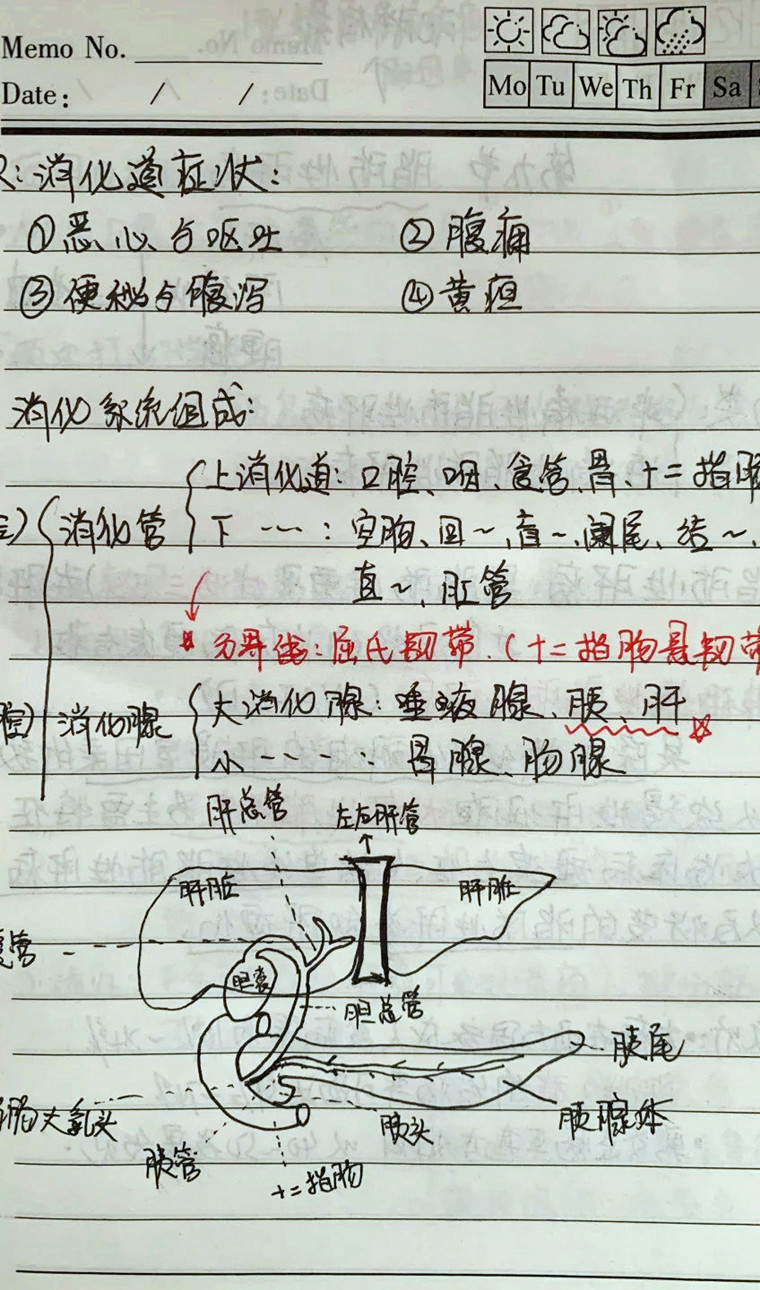 Memo No.
Date: / /
Mo Tu We Th Fr Sa
:消化道症状:
①恶心与呕吐 ②腹痛
③便秘与腹泻 ④黄疸
消化系统组成:
消化管
上消化道:口腔、咽、食管、胃、十二指肠
下----:空肠、回~、盲~、阑尾、结~、
直~、肛管
分界线:屈氏韧带.(十二指肠悬韧带
消化腺
大消化腺:唾液腺、胰、肝
小----:胃腺、肠腺
肝总管 左右肝管
肝脏 肝脏
管
胆囊
胆总管
胰尾
肠大乳头 胰头 胰腺体
胰管
十二指肠